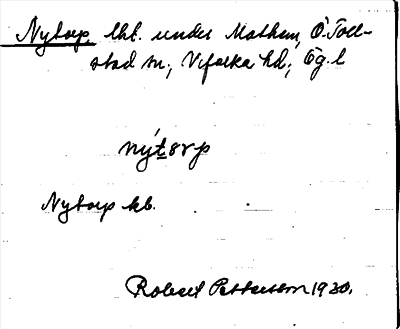 Nytorp, lht. under Mathem, Ö. Toll-
stad sn; Vifolka hd; Ög. l
nýtorp
Nytorp kb.
Robert Pettersson 1930.